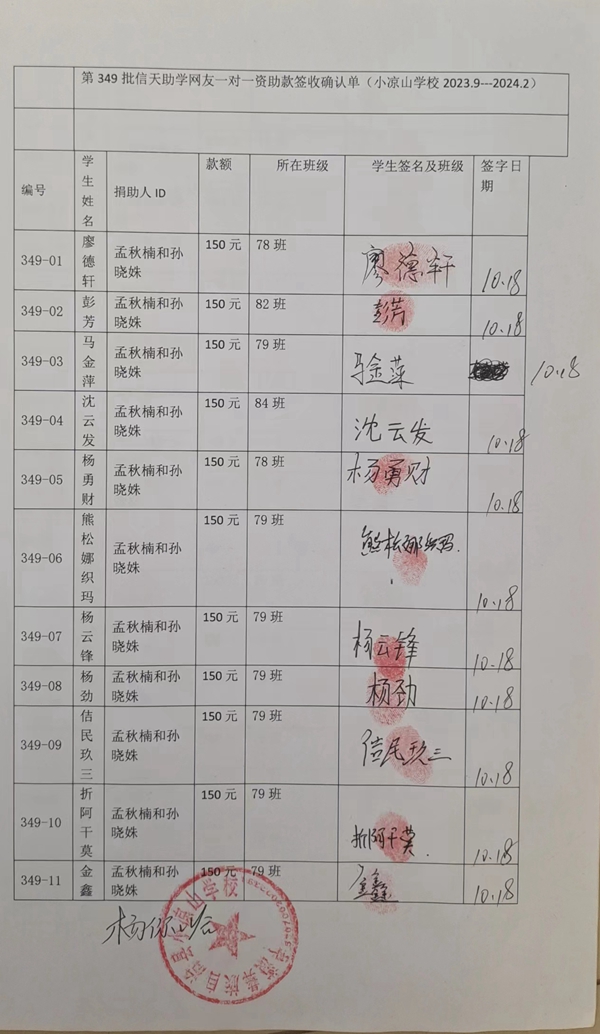 第 349 批信天助学网友一对一资助款签收确认单（小凉山学校 2023.9---2024.2）
编号 学生姓名 捐助人 ID 款额 所在班级 学生签名及班级 签字日期
349-01 廖德轩 孟秋楠和孙晓姝 150 元 78 班 廖德轩 10.18
349-02 彭芳 孟秋楠和孙晓姝 150 元 82 班 彭芳 10.18
349-03 马金萍 孟秋楠和孙晓姝 150 元 79 班 马金萍 10.18
349-04 沈云发 孟秋楠和孙晓姝 150 元 84 班 沈云发 10.18
349-05 杨勇财 孟秋楠和孙晓姝 150 元 78 班 杨勇财 10.18
349-06 熊松娜织玛 孟秋楠和孙晓姝 150 元 79 班 熊松娜织玛. 10.18
349-07 杨云锋 孟秋楠和孙晓姝 150 元 79 班 杨云锋 10.18
349-08 杨劲 孟秋楠和孙晓姝 150 元 79 班 杨劲 10.18
349-09 佶民玖三 孟秋楠和孙晓姝 150 元 79 班 佶民玖三 10.18
349-10 折阿干莫 孟秋楠和孙晓姝 150 元 79 班 折阿干莫. 10.18
349-11 金鑫 孟秋楠和孙晓姝 150 元 79 班 金鑫 10.18